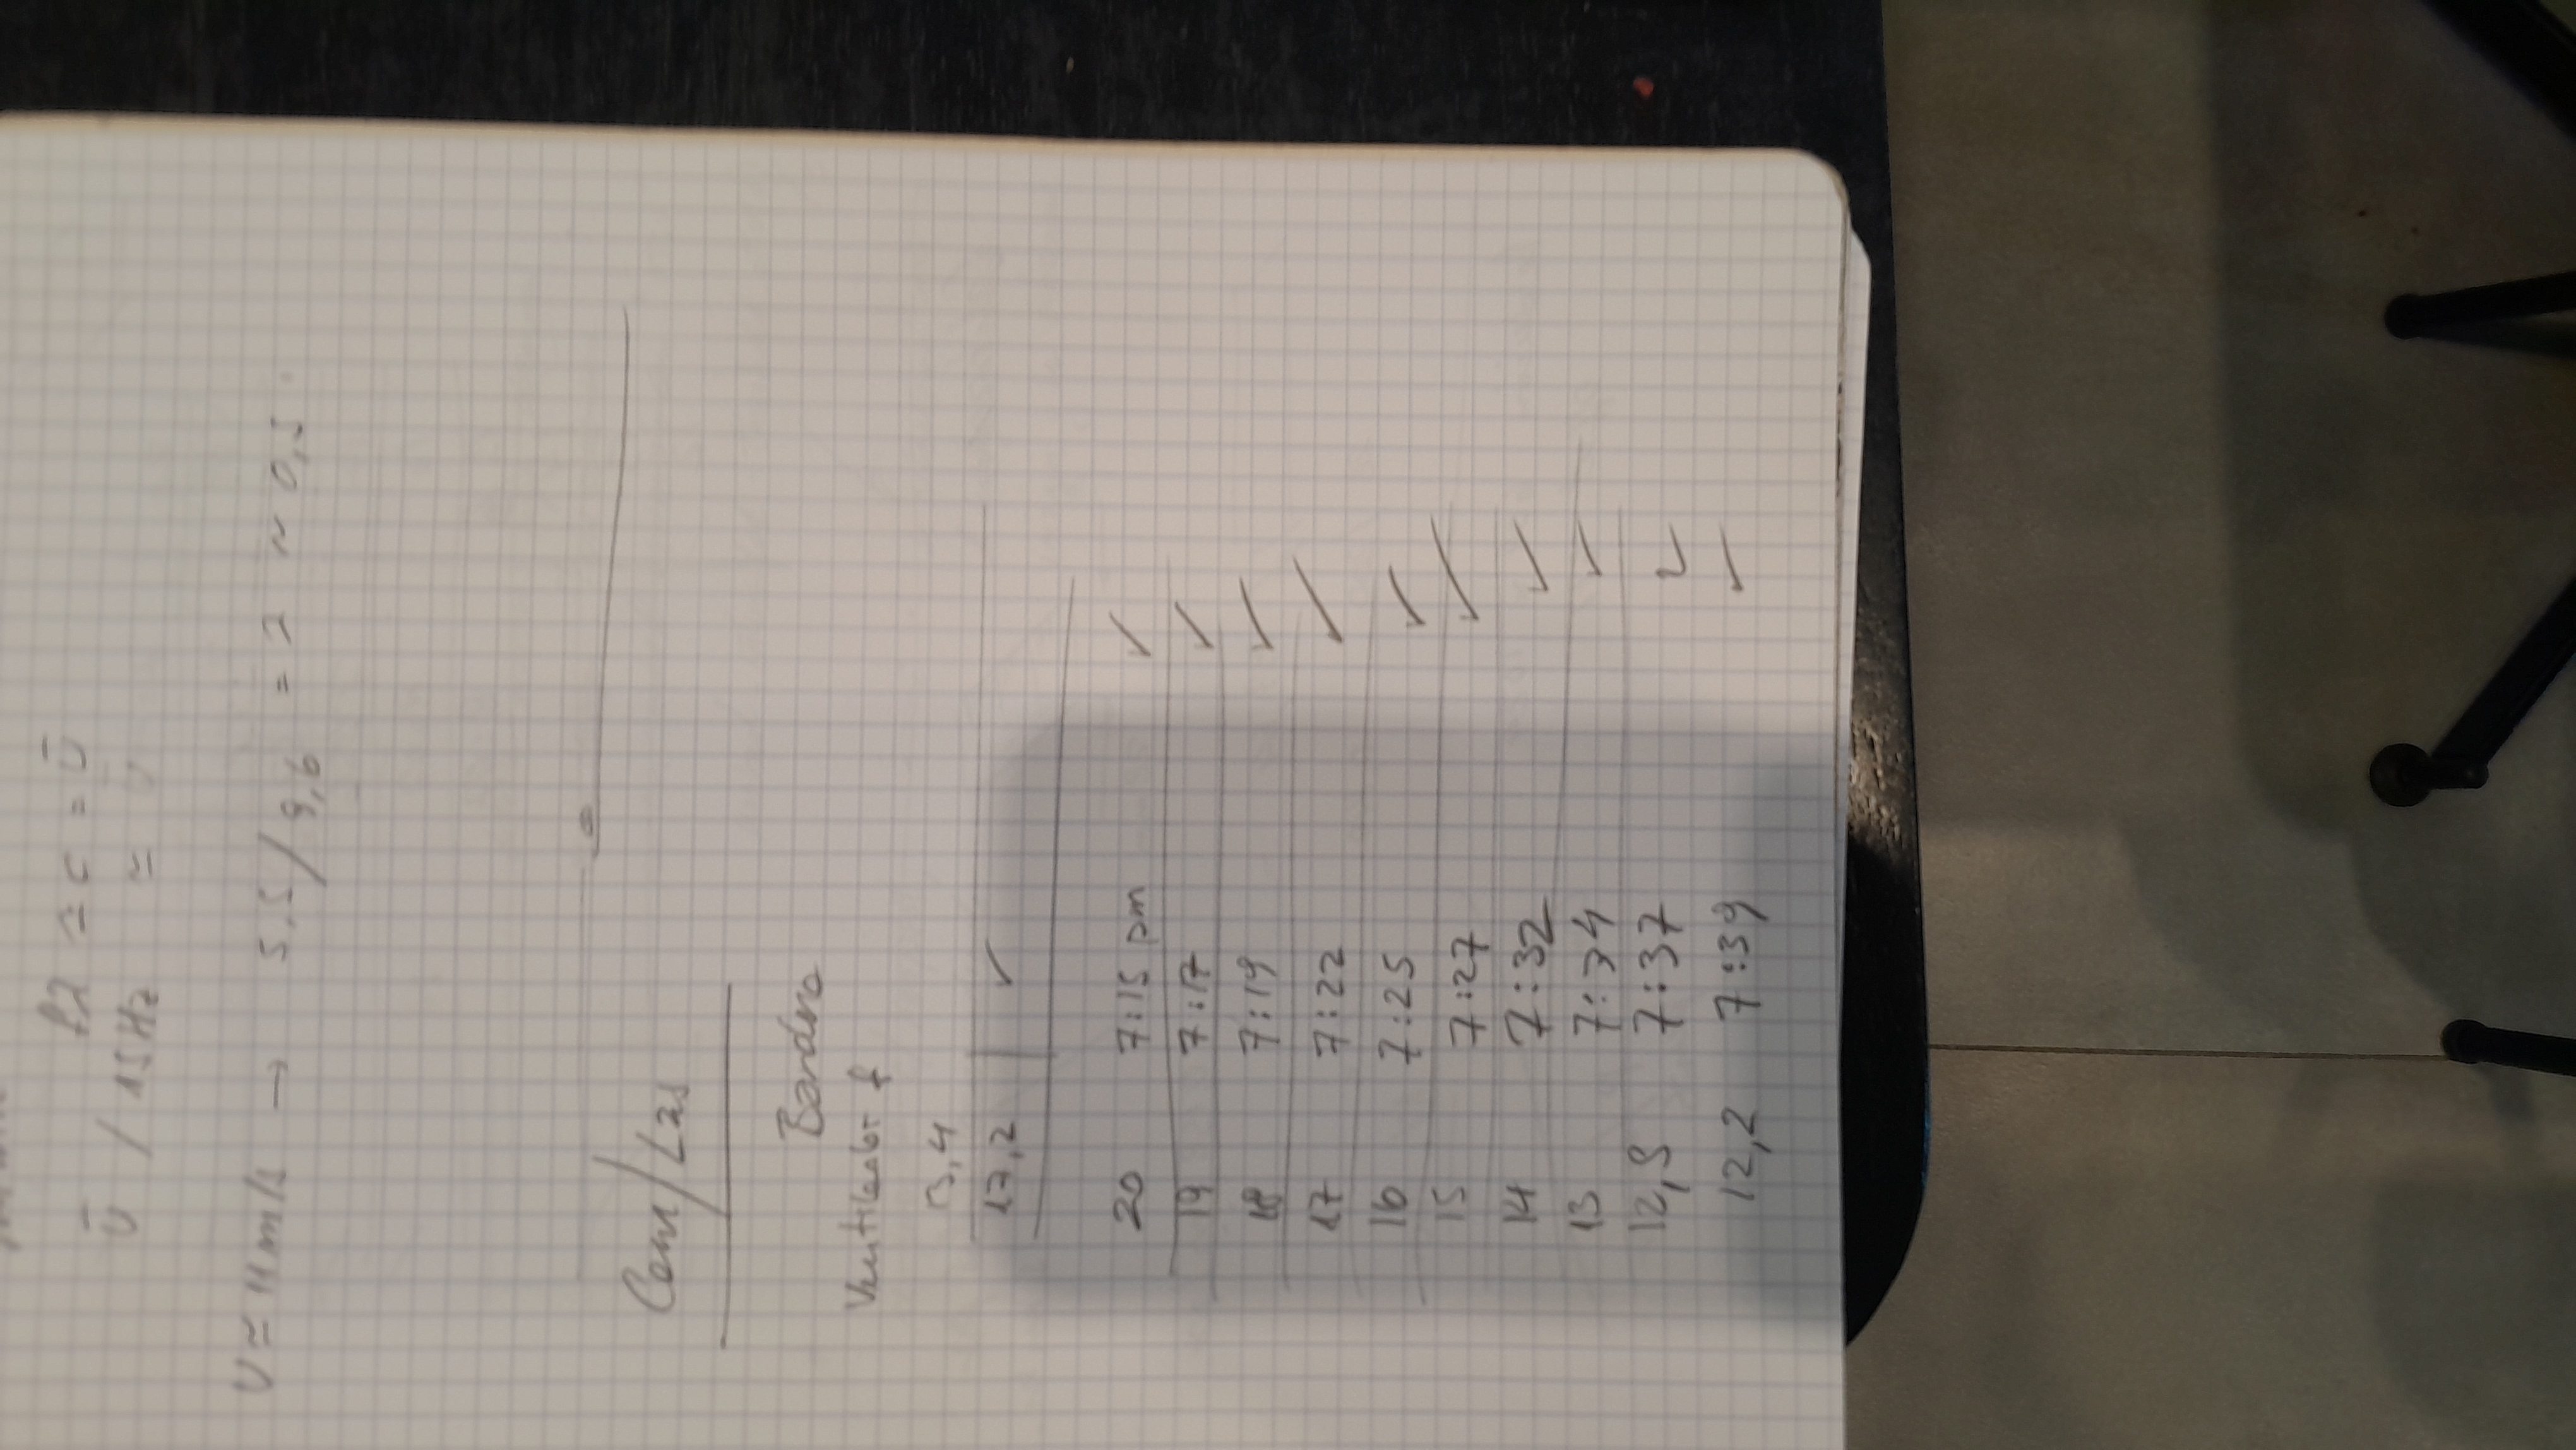 fλ ≃ c = Ū
Ū / 15Hz ≃
U ≃ 11 m/s → 5,5/9,6 = λ ~ 0,5
Cam/Las
Ventilador f
17,2 ✓
20 7:15 pm ✓
19 7:17 ✓
18 7:19 ✓
17 7:22 ✓
16 7:25 ✓
15 7:27 ✓
14 7:32 ✓
13 7:34 ✓
7:37 ✓
12,2 7:39 ✓